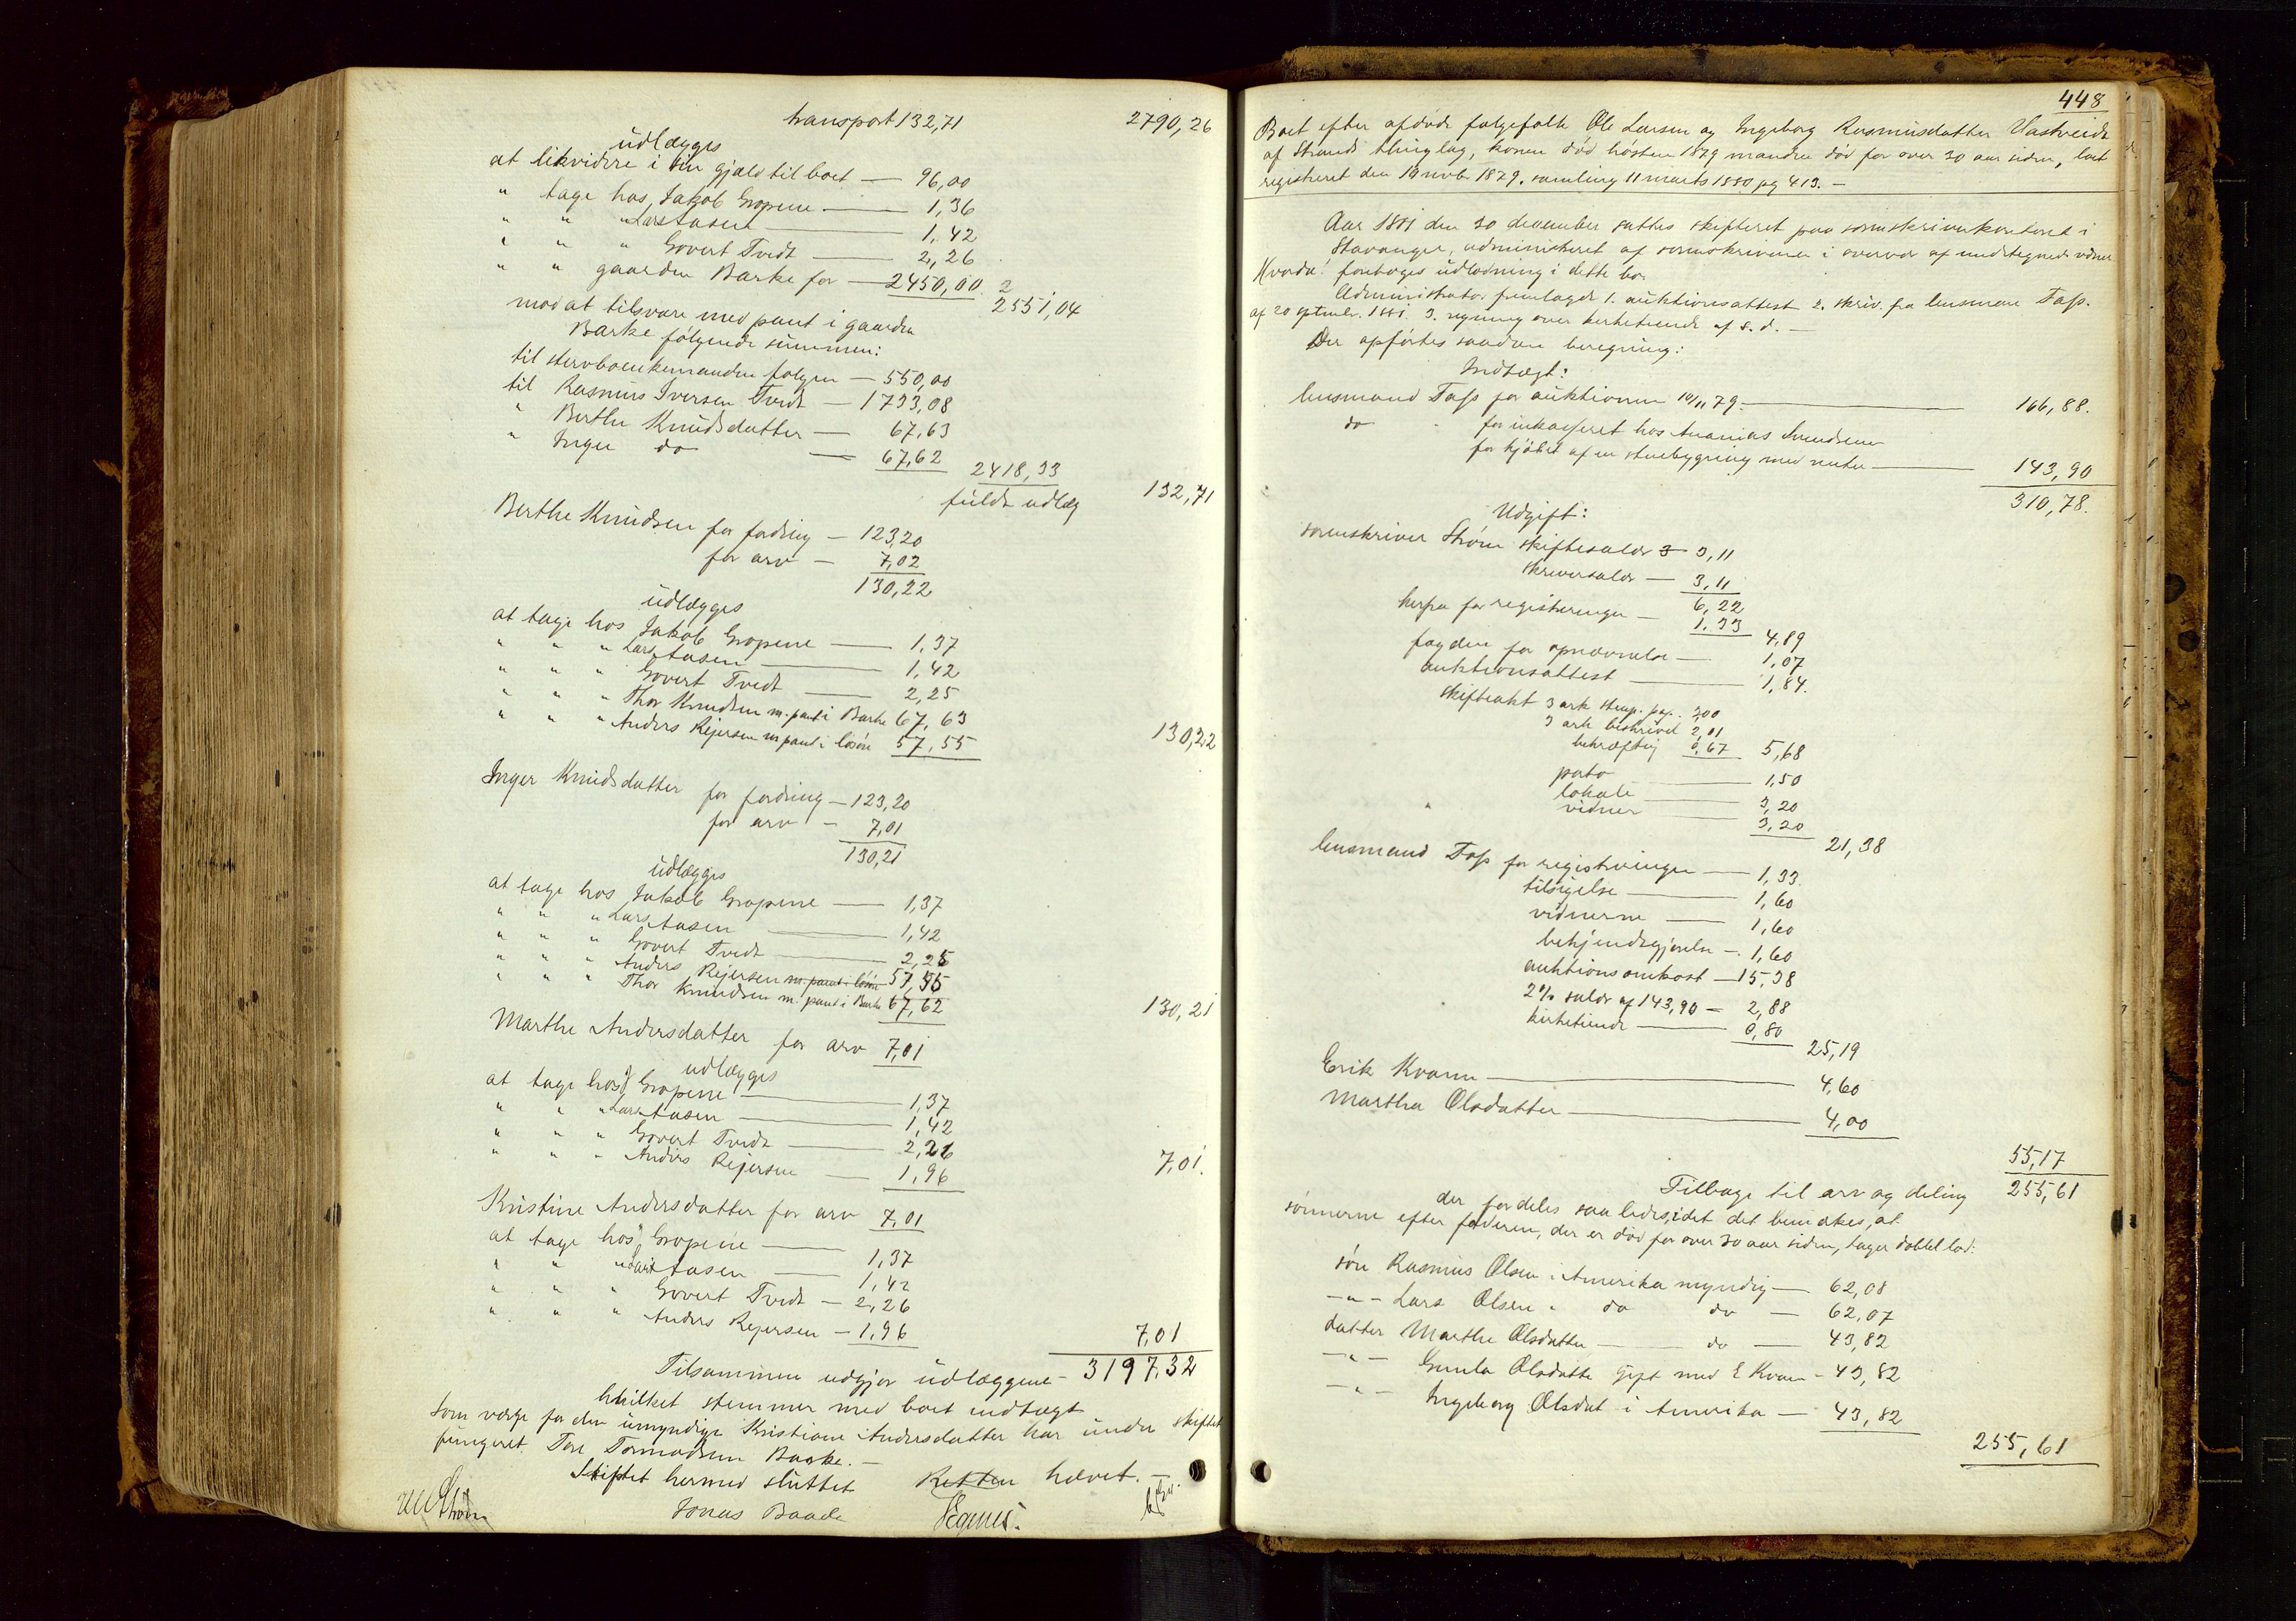 transport 132,71 2790,26
udlægges
at likvidere i sin gjæld til boet — 96,00
" tage hos Jakob Gropene — 1,36
" " " Lars Aasen — 1,42
" " " Govert Tvedt — 2,26
" " gaarden Barke for — 2450,00 2551,04
mod at tilsvare med pant i gaarden
Barke følgende summer:
til stervboenkemanden følgen — 550,00
til Rasmus Iversen Tvedt — 1733,08
" Berthe Knudsdatter — 67,63
" Inger do — 67,62 2418,33
fuldt udlæg 132,71
Berthe Knudsen for fordring — 123,20
for arv — 7,02
130,22
udlægges
at tage hos Jakob Gropene — 1,37
" " " Lars Aasen — 1,42
" " " Govert Tvedt — 2,25
" " " Thor Knudsen m. pant i Barke 67,63
" " " Anders Rejersen m pant i løsøre 57,55 130,22
Inger Knudsdatter for fordring — 123,20
for arv — 7,01
130,21
udlægges
at tage hos Jakob Gropene — 1,37
" " " Lars Aasen — 1,42
" " " Govert Tvedt — 2,25
" " " Anders Rejersen m. pant i løsøre 57,55
" " " Thor Knudsen m. pant i Barke 67,62 130,21
Marthe Andersdatter for arv 7,01
udlægges
at tage hos J Gropene — 1,37
" " " Lars Aasen — 1,42
" " " Govert Tvedt — 2,26
" " " Anders Rejersen — 1,96 7,01.
Kristine Andersdatter for arv 7,01
at tage hos Gropene — 1,37
" " " Lars Aasen — 1,42
" " " Govert Tvedt — 2,26
" " " Anders Rejersen — 1,96 7,01
Tilsammen udgjør udlæggene — 3197,32
hvilket stemmer med boets indtægt
Som værge for den umyndige Kristiane Andersdatter har under skiftet
fungeret Tore Tormodsen Barke. —
Skiftet hermed sluttet Retten hævet. —
Strøm Jonas Baade
448
Boet efter afdøde følgefolk Ole Larsen og Ingeborg Rasmusdatter Vastveidt
af Strands thinglag, konen død høsten 1879 manden død for over 30 aar siden, boet
registreret den 10 novb. 1879. samling 11 marts 1880 pg 413. —
Aar 1881 den 30 december sattes skifteret paa sorenskriverkontoret i
Stavanger, administreret af sorenskriveren i overvær af undertegnede vidner
Hvorda: foretoges udlodning i dette bo.
Administrator fremlagde 1. auktionsattest 2. skriv. fra lensmand Faps.
af 20 septembr. 1881. 3. regning over kirketiende af s. d. —
Der opførtes saadan beregning:
Indtægt:
lensmand Faps for auktionen 10/11 79. — 166,88.
do for inkasseret hos Ananias Svendsen
for kjøbet af en stuebygning med renter — 143,90
310,78.
Udgift:
sorenskriver Strøm skiftesalær 3,11
skriversalær — 3,11
6,22
herfra for registeringen — 1,33 4,89
fogden for opnævnelse — 1,07
auktionsattest — 1,84.
skifteakt 3 ark stemp. pap. 3,00
3 ark beskrevet 2,01
bekræftig 0,67 5,68
porto — 1,50
lokale — 3,20
vidner — 3,20
21,38
lensmand Faps for registeringen — 1,33.
tilsigelse — 1,60
vidnerne — 1,60
bekjendtgjørelse — 1,60
auktionsomkost — 15,38
2% salær af 143,90 — 2,88
kirketiende — 0,80
25,19
Erik Kvam — 4,60
Martha Olsdatter — 4,00
55,17
Tilbage til arv og deling 255,61
der fordeles saaledes, idet det bemærkes, at
sønnerne efter faderen, der er død for over 30 aar siden, tager dobbel lod:
søn Rasmus Olsen i Amerika myndig — 62,08
—"— Lars Olsen " do do — 62,07
datter Marthe Olsdatter — do — 43,82
—"— Gunla Olsdatter gift med E Kvam — 43,82
—"— Ingeborg Olsdat i Amerika — 43,82
255,61